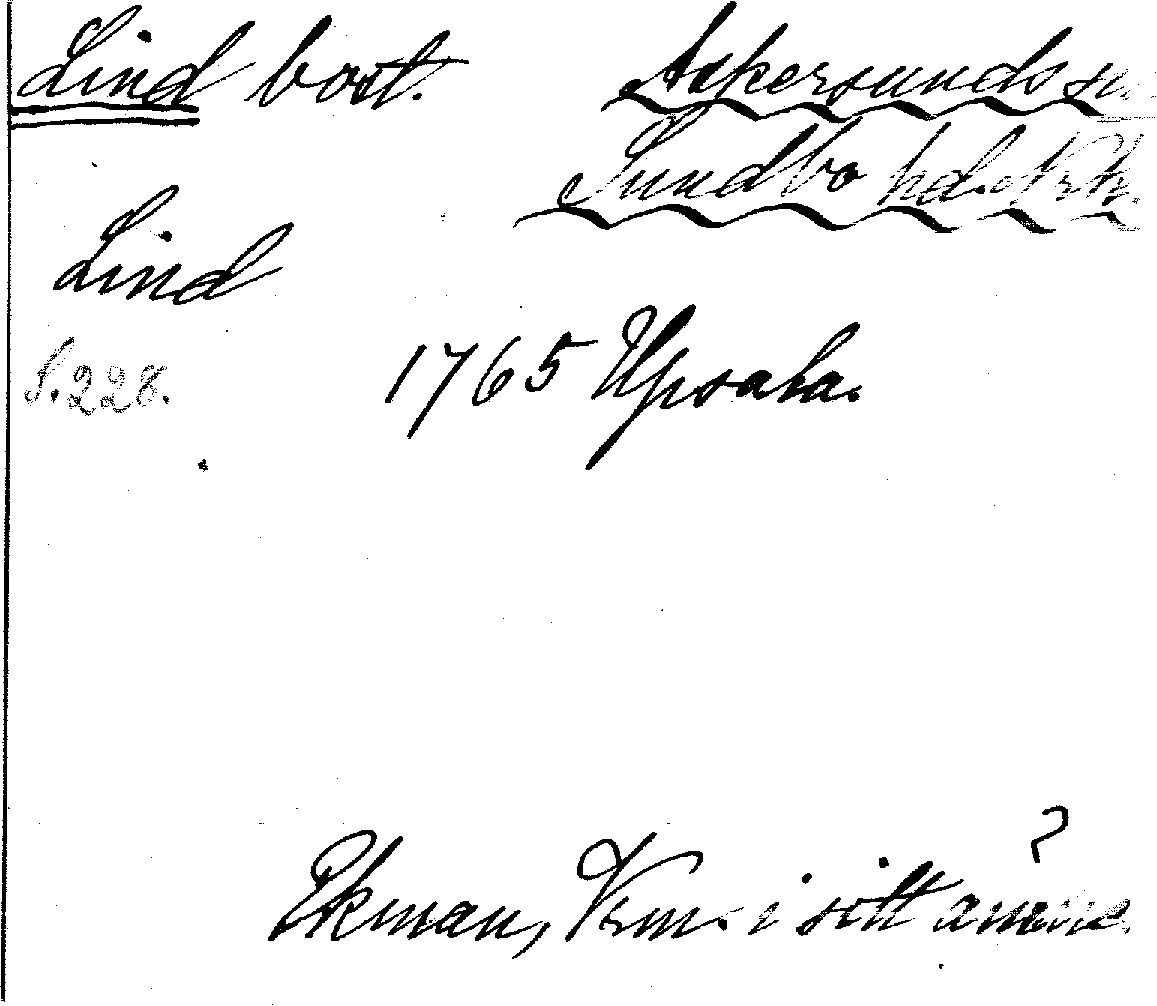 Lind bost. Askersunds sn
Sundbo hd. Nrk.
Lind
S. 228. 1765 Upsala.
?
Ekman, Vrm. i sitt ämne.